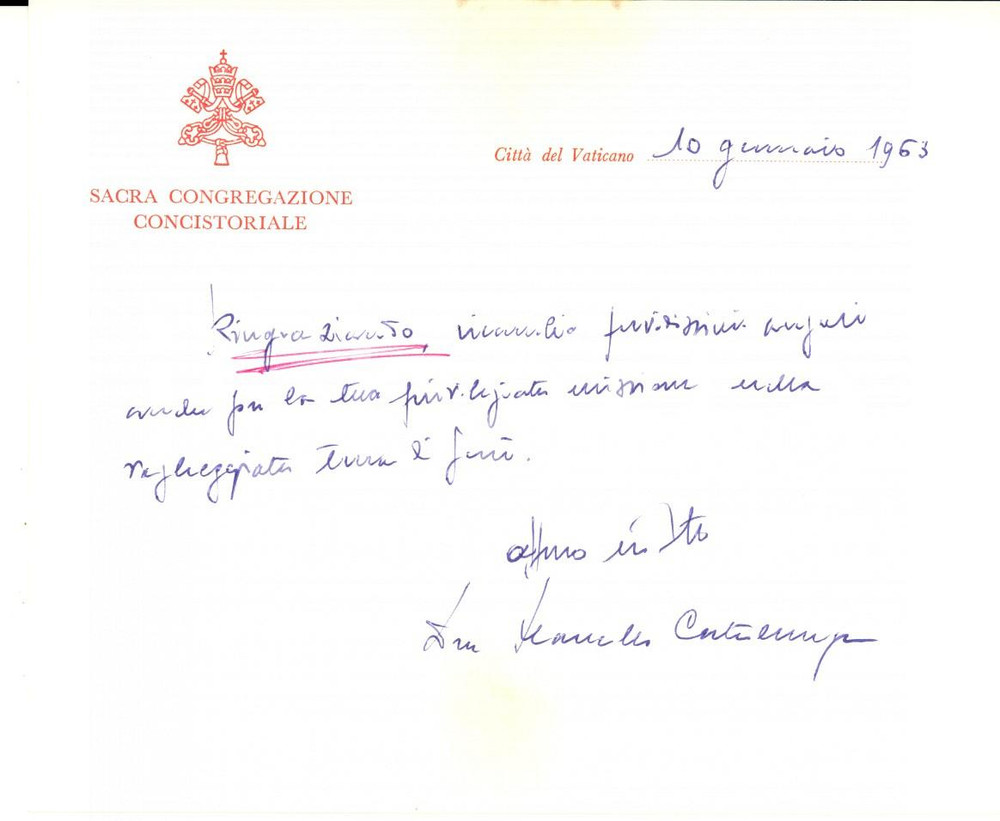 SACRA CONGREGAZIONE
CONCISTORIALE
Città del Vaticano 10 gennaio 1963
Ringraziando, ricambio fervidissimi auguri
anche per la tua privilegiata missione nella
vagheggiata terra di Gesù.
affmo in
Don Costalunga